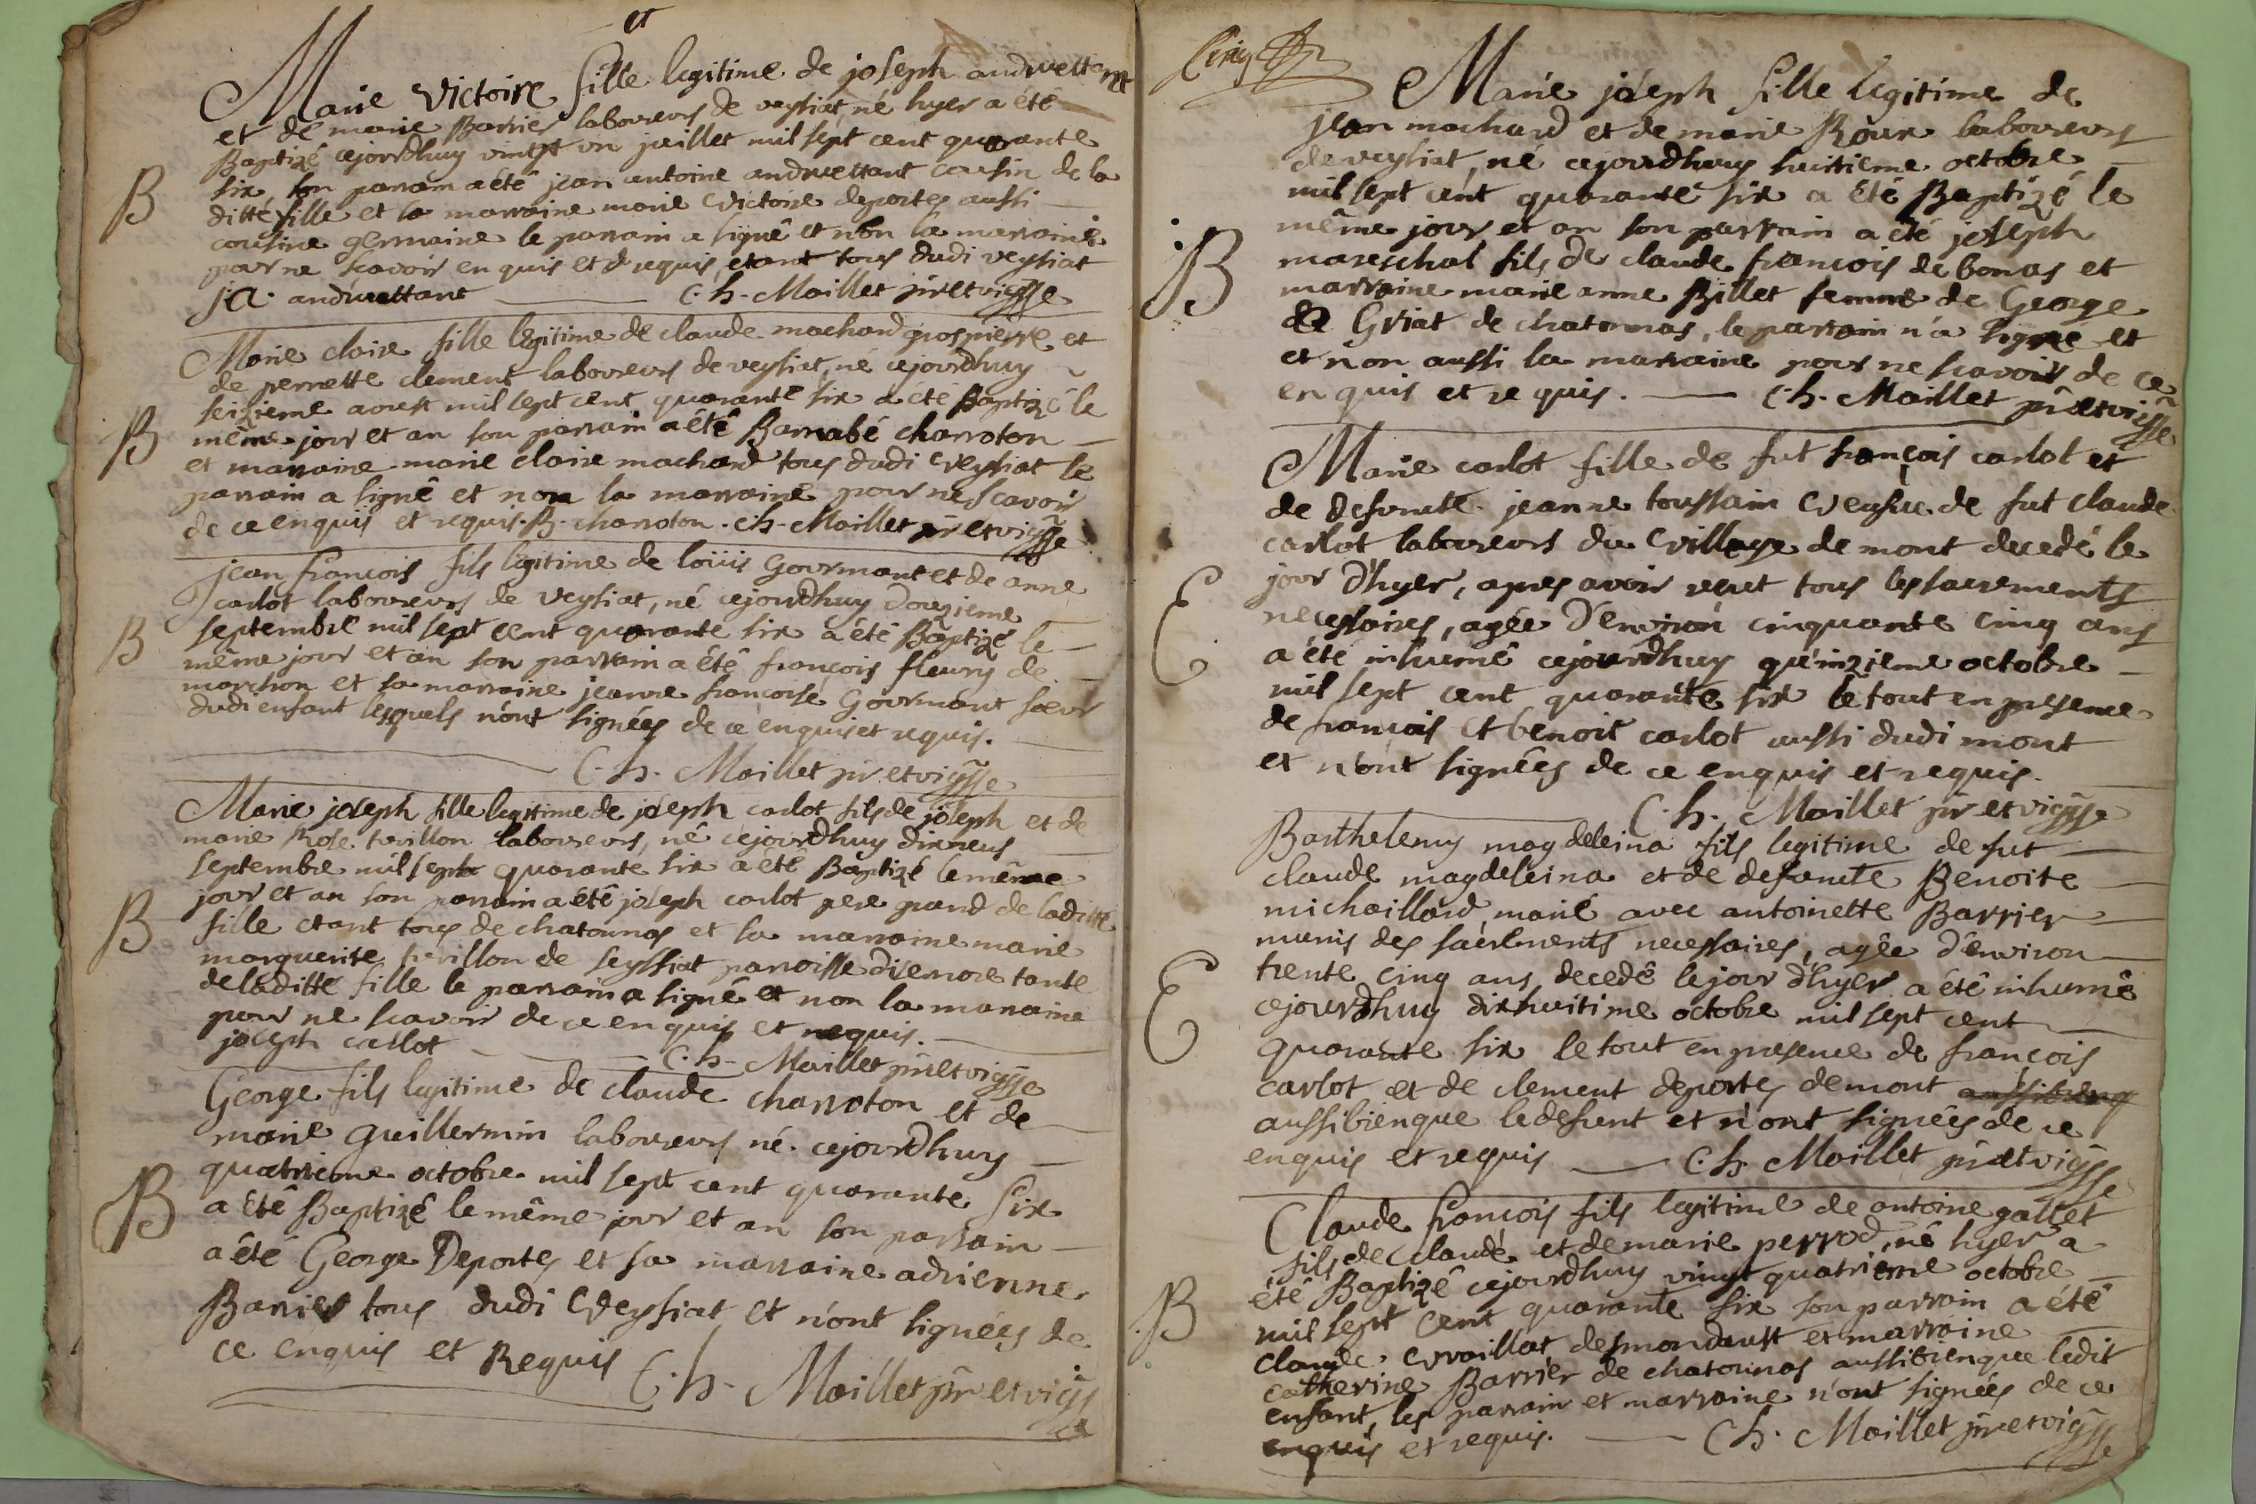 et
Marie Victoire fille legitime de joseph andruettant
et de marie Barrier laboureurs de veysiat, né hyer a été
Baptizé cejourdhuy vingt un juillet mil sept cent quarante
six son parrain a été jean antoine andruettant cousin de la
ditte fille et la marraine marie Victoire deportes aussi
cousine germaine le parrain a signé et non la marraine
pour ne scavoir enquis et requis étant tous dudi veysiat
J A. andruettant C. h. Maillet prêt vigsse
B
Marie claire fille legitime de claude machard grospierre et
de pernette clement laboureurs de veysiat, né cejourdhuy
seizieme aoust mil sept cent quarante six a été Baptizé le
même jour et an son parrain a été Barnabé charroton
et marraine marie claire machard tous dudi Veysiat le
parrain a signé et non la marraine pour ne scavoir
de ce enquis et requis. B. charroton. C. h. Maillet pr et vigsse
B
jean françois fils legitime de loüis Gourmant et de anne
carlot laboureurs de veysiat, né cejourdhuy douzieme
septembre mil sept cent quarante six a été Baptizé le
même jour et an son parrain a été françois fleury de
marchon et sa marraine jeanne françoise Gourmant soeur
dudi enfant lesquels n'ont signées de ce enquis et requis.
C. h. Maillet pr et vigsse
B
Marie joseph fille legitime de joseph carlot fils de joseph et de
marie Rose tovillon laboureurs, né cejourdhuy dixneuf
septembre mil sept quarante six a été Baptizé le même
jour et an son parrain a été joseph carlot pere grand de laditte
fille etant tous de chatonnas et sa marraine marie
marguerite tovillon de seyssiat parroisse diemore tante
de laditte fille le parrain a signé et non la marraine
pour ne scavoir de ce enquis et requis.
joseph carlot C. h. Maillet pr et vigsse
B
George fils legitime de claude charroton et de
marie Guillermin laboureurs né cejourdhuy
quatrieme octobre mil sept cent quarante six
a été Baptizé le même jour et an son parrain
a été George Deportes et sa marraine adrienne
Barrier tous dudi Veysiat et n'ont signées de
ce enquis et Requis C. h. Maillet pr et vigsse
B
Cinq
Marie joseph fille legitime de
jean machard et de marie Roux laboureurs
de veysiat, né cejourdhuy huitieme octobre
mil sept cent quarante six a été Baptizé le
même jour et an son parrain a été joseph
mareschal fils de claude françois de bonas et
marraine marie anne Billet femme de George
Griat de chatonnas, le parrain n'a signé et
et non aussi la marraine pour ne scavoir de ce
enquis et requis. C. h. Maillet pr et vigsse
B
Marie carlot fille de fut françois carlot et
de defuncte jeanne toussain Veufue de fut claude
carlot laboureurs du Village de mont decedé le
jour d'hyer, apres avoir reçut tous les sacrements
necessaires, agée d'environ cinquante cinq ans
a été inhumé cejourdhuy quinzieme octobre
mil sept cent quarante six le tout en presence
de françois et benoit carlot aussi dudi mont
et n'ont signées de ce enquis et requis.
C. h. Maillet pr et vigsse
Barthelemy magdeleina fils legitime de fut
claude magdeleina et de defuncte Benoite
michaillard, marié avec antoinette Barrier
munis des sacrements necessaires, agée d'environ
trente cinq ans, decedé le jour d'hyer a été inhumé
cejourdhuy dixhuitime octobre mil sept cent
quarante six le tout en presence de françois
carlot et de clement deportes de mont aussibienq
aussibienque ledefunt et n'ont signées de ce
enquis et requis C. h. Maillet pr et vigsse
Claude françois fils legitime de antoine gallet
fils de claude et de marie perrod, né hyer a
été Baptizé cejourdhuy vingt quatrieme octobre
mil sept cent quarante six son parrain a été
Claude Vvaillat desmondaust et marraine
catherine Barrier de chatonnas aussibienque ledit
enfant, les parrain et marraine n'ont signées de ce
enquis et requis. C. h. Maillet pr et vigsse
B